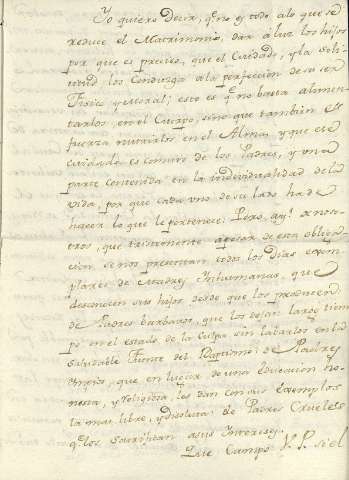 Yo quiero decir, qe. no es todo a lo que se
reduce el Matrimonio, dar á luz los hijos
por que es preciso, que el Cuidado, y la soli
citud los Conduzga a la perfeccion de su ser
Fisico y moral; esto es qe. no basta alimen
tarlos, en el Cuerpo, sino que tambien es
fuerza nutrirlos en el Alma, y que este
Cuidado es comun de los Padres, y una
parte contenida en la individualidad de la
vida, por que cada uno de su lado ha de
hacer lo que le pertenece. Pero, ay! a noso-
tros, que tristemente apesar de esta obliga
cion se nos presentan todos los dias exem
plares de Madres Inhumanas, que
desconocen sus hijos desde que los
de Padres barbaros, que los dejan largo tiem
po en el estado de la Culpa sin labarlos en la
saludable Fuente del Baptismo: de Padres
impios, que en lugar de una Educacion ho-
nesta, y religiosa, les dan con sus exemplos
la mas libre, y disoluta: de Padres Crueles
qe. los Sacrifican a sus Intereses.
Que Campo V. P. si el